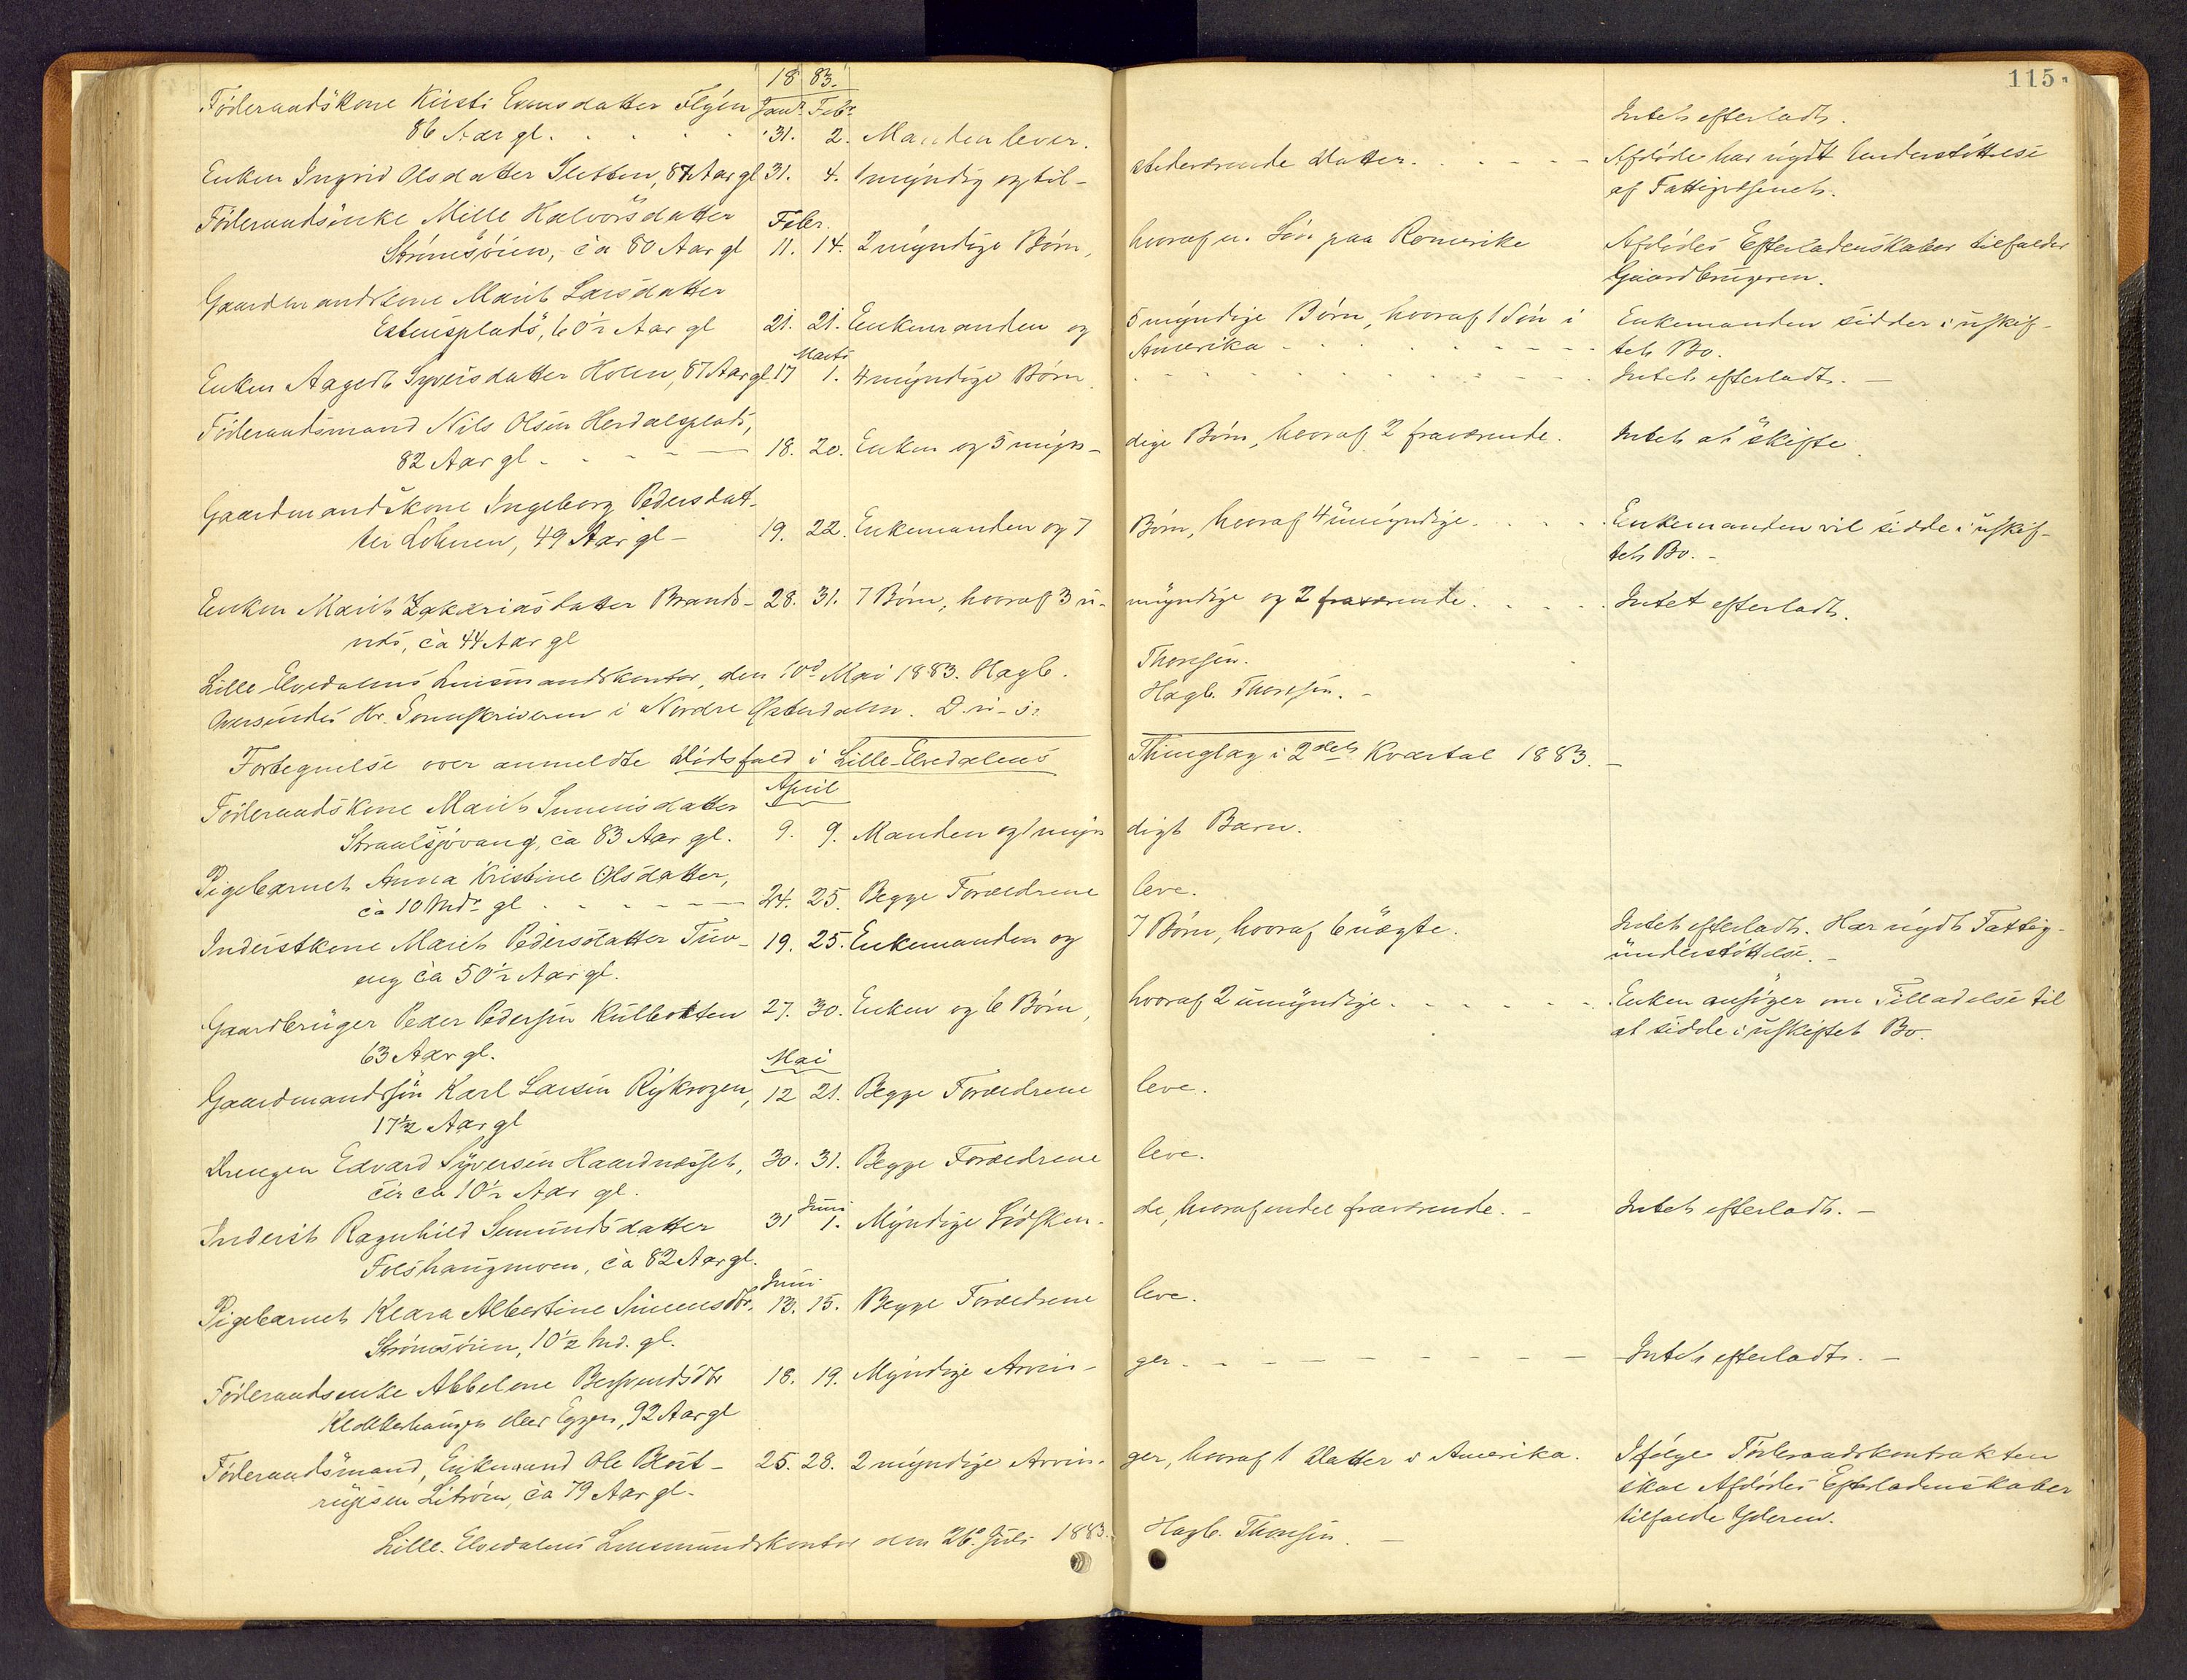 115
1883.
Föderaadskone Kirsti Esensdatter Flyen Janr. Febr. Intet efterladt.
86 Aar gl. 31. 2. Manden lever.
Enken Ingrid Olsdatter Sletten, 87 Aar gl 31. 4. 1 myndig og til- stedeværende Datter. Afdøde har nydt Understöttelse
af Fattigvæsenet.
Föderaadsenke Mille Halvorsdatter Febr.
Strømsøien, ca 80 Aar gl 11. 14. 2 myndige Børn, hvoraf en Søn paa Romerike Afdødes Efterladenskaber tilfalder
Gaardbrugeren.
Gaardmandskone Marit Larsdatter
Estensplads, 60½ Aar gl 21. 21. Enkemanden og 5 myndige Børn, hvoraf 1 Søn i Enkemanden sidder i uskif-
Amerika tet Bo.
Marts
Enken Aagedt Syversdatter Holen, 87 Aar gl. 17 1. 4 myndige Børn. Intet efterladt.
Föderaadsmand Nils Olsen Herdalsplads,
82 Aar gl. 18. 20. Enken og 5 myn- dige Børn, hvoraf 2 fraværende. Intet at skifte.
Gaardmandskone Ingeborg Pedersdat-
ter Lohnen, 49 Aar gl 19. 22. Enkemanden og 7 Børn, hvoraf 4 umyndige. Enkemanden vil sidde i uskif-
tet Bo.
Enken Marit Zakariasdatter Brands- 28. 31. 7 Børn, hvoraf 3 u- myndige og 2 fraværende. Intet efterladt.
nds, ca 44 Aar gl
Lille Elvedalens Lensmandskontor, den 10d Mai 1883. Hagb. Thoresen.
Oversendes Hr. Sorenskriveren i Nordre Østerdalen. D. u. s. Hagb. Thoresen.
Fortegnelse over anmeldte Dödsfald i Lille-Elvedalens Thinglag i 2det Kvartal 1883.
April
Föderaadskone Marit Simensdatter
Straalsjövang, ca 83 Aar gl. 9. 9. Manden og 1 myn digt Barn.
Pigebarnet Anna Kristine Olsdatter,
ca 10 Mdr gl 24. 25. Begge Forældrene leve.
Inderstkone Marit Pedersdatter Tuv- 19. 25. Enkemanden og 7 Børn, hvoraf 6 uægte. Intet efterladt. Har nydt Fattig-
eng ca 50½ Aar gl. understöttelse.
Gaardbruger Peder Pedersen Kulbotten 27. 30. Enken og 6 Børn, hvoraf 2 umyndige. Enken ansöger om Tilladelse til
63 Aar gl. at sidde i uskiftet Bo.
Mai
Gaardmandssön Karl Larsen Rykrogen, 12 21. Begge Forældrene leve.
17½ Aar gl
Drengen Edvard Syversen Haardnæsset, 30. 31. Begge Forældrene leve.
circa 10½ Aar gl.
Juni
Inderst Ragnhild Semundsdatter 31 1. Myndige Södsken- de, hvoraf endel fraværende. Intet efterladt.
Foeshaugmoen, ca 82 Aar gl.
Juni
Pigebarnet Klara Albertine Simensdtr. 13. 15. Begge Forældrene leve.
Strømsøien, 10½ Md. gl.
Föderaadsenke Abbelone Bersvendsdtr 18. 19. Myndige Arvin- ger. Intet efterladt.
Klokkerhaugen eller Eggen, 92 Aar gl
Föderaadsmand, Enkemand Ole Blost- 25. 28. 2 myndige Arvin- ger, hvoraf 1 Datter i Amerika. Ifölge Föderaadskontrakten
rupsen Litröen, ca 79 Aar gl. skal Afdødes Efterladenskaber
tilfalde Yderen.
Lille-Elvedalens Lensmandskontor den 26. Juli 1883. Hagb. Thoresen.